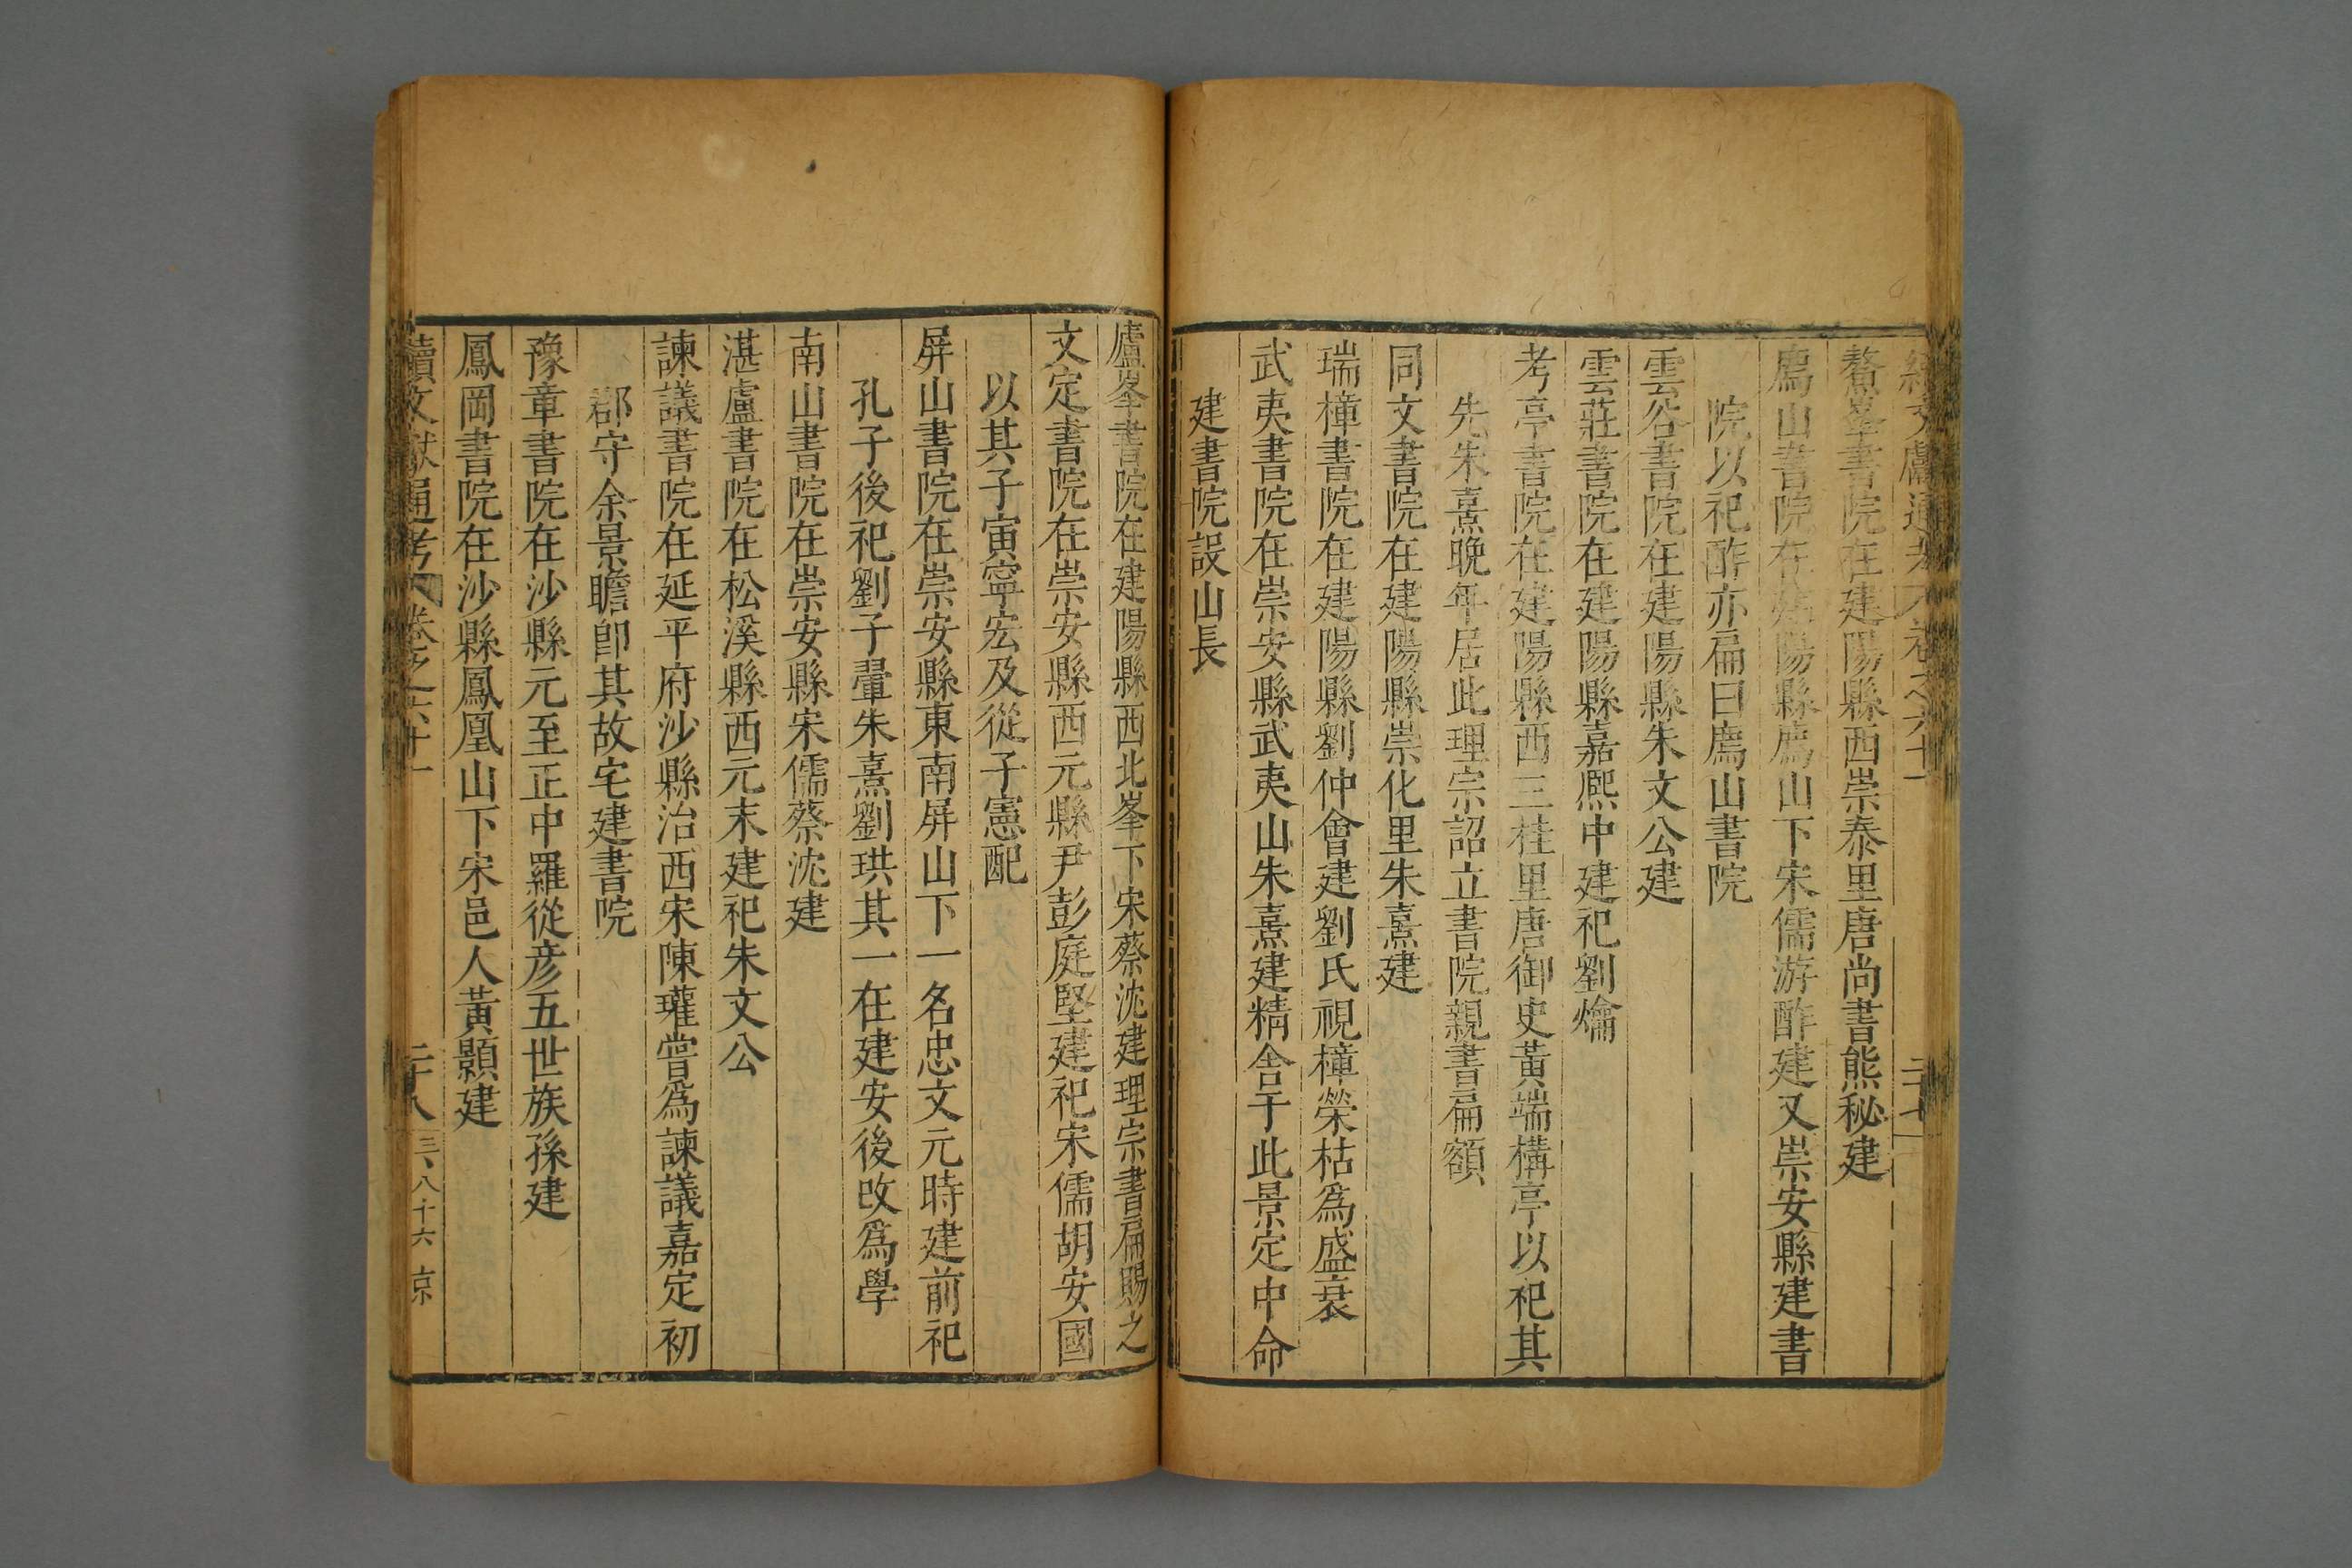 續文獻通考 卷之六十一 二十七
鰲峯書院在建陽縣西崇泰里唐尚書熊秘建
廌山書院在建陽縣廌山下宋儒游酢建又崇安縣建書
院以祀酢亦扁曰廌山書院
雲谷書院在建陽縣朱文公建
雲莊書院在建陽縣嘉熙中建祀劉爚
考亭書院在建陽縣西三桂里唐御史黃端構亭以祀其
先朱熹晚年居此理宗詔立書院親書扁額
同文書院在建陽縣崇化里朱熹建
瑞樟書院在建陽縣劉仲會建劉氏視樟榮枯爲盛衰
武夷書院在崇安縣武夷山朱熹建精舎于此景定中命
建書院設山長
廬峯書院在建陽縣西北峯下宋蔡沈建理宗書扁賜之
文定書院在崇安縣西元縣尹彭庭堅建祀宋儒胡安國
以其子寅寧宏及從子憲配
屏山書院在崇安縣東南屏山下一名忠文元時建前祀
孔子後祀劉子翬朱熹劉珙其一在建安後改爲學
南山書院在崇安縣宋儒蔡沈建
湛盧書院在松溪縣西元末建祀朱文公
諫議書院在延平府沙縣治西宋陳瓘嘗爲諫議嘉定初
郡守余景瞻卽其故宅建書院
豫章書院在沙縣元至正中羅從彦五世族孫建
鳳岡書院在沙縣鳳凰山下宋邑人黃顯建
續文獻通考 卷之六十一 二十八 三八十六 京